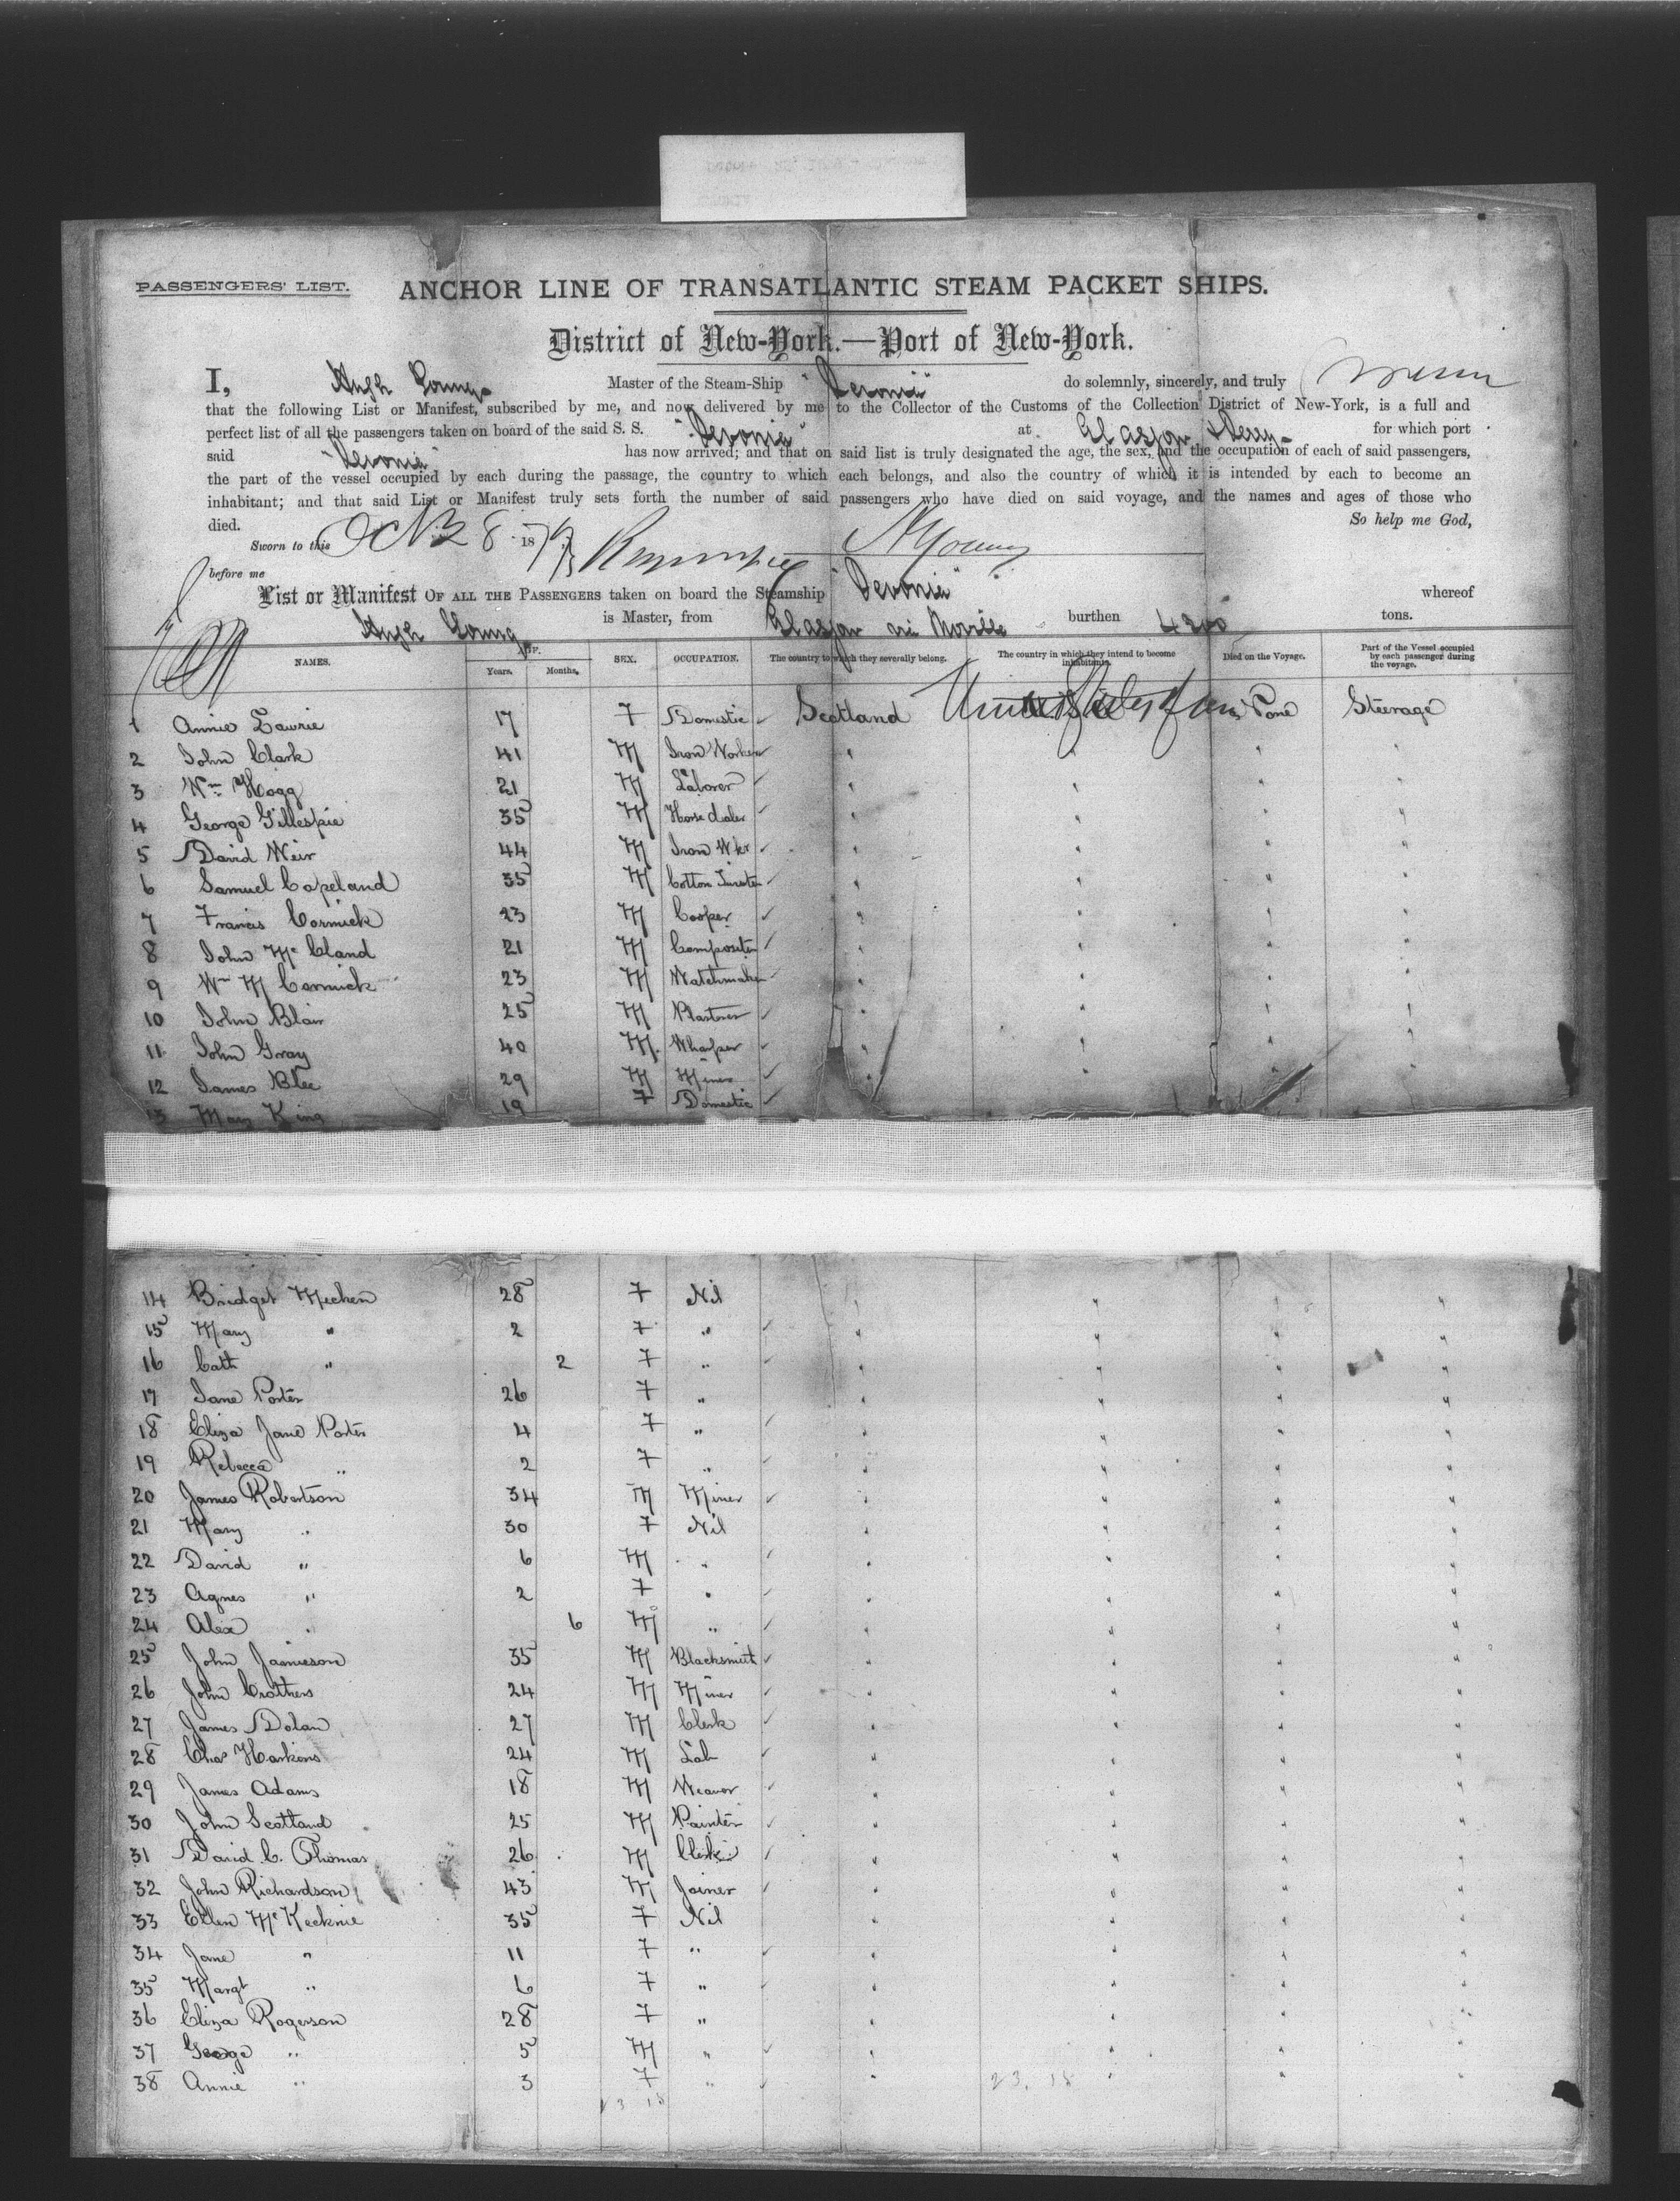 PASSENGERS' LIST. ANCHOR LINE OF TRANSATLANTIC STEAM PACKET SHIPS.
District of New-York.—Port of New-York.
I, Hugh Young Master of the Steam-Ship "Devonia" do solemnly, sincerely, and truly swear
that the following List or Manifest, subscribed by me, and now delivered by me to the Collector of the Customs of the Collection District of New-York, is a full and
perfect list of all the passengers taken on board of the said S. S. "Devonia" at Glasgow & Derry for which port
said "Devonia" has now arrived; and that on said list is truly designated the age, the sex, and the occupation of each of said passengers,
the part of the vessel occupied by each during the passage, the country to which each belongs, and also the country of which it is intended by each to become an
inhabitant; and that said List or Manifest truly sets forth the number of said passengers who have died on said voyage, and the names and ages of those who
died. So help me God,
Sworn to this Oct 28 1879 H Young
before me
List or Manifest OF ALL THE PASSENGERS taken on board the Steamship "Devonia" whereof
Hugh Young is Master, from Glasgow via Moville burthen 4200 tons.
NAMES. AGE. Years. Months. SEX. OCCUPATION. The country to which they severally belong. The country in which they intend to become inhabitants. Died on the Voyage. Part of the Vessel occupied by each passenger during the voyage.
1 Annie Lawrie 17 F Domestic Scotland United States None Steerage
2 John Clark 41 M Iron Worker " " " "
3 Wm Hogg 21 M Laborer " " " "
4 George Gillespie 35 M Horse dealer " " " "
5 David Weir 44 M Iron Wker " " " "
6 Samuel Copeland 35 M Cotton Twister " " " "
7 Francis Cormick 23 M Cooper " " " "
8 John Mc Cland 21 M Compositer " " " "
9 Wm M Cormick 23 M Watchmaker " " " "
10 John Blair 25 M Plasterer " " " "
11 John Gray 40 M. Wharper " " " "
12 James Blee 29 M Miner " " " "
13 Mary King 19 F Domestic
14 Bridget Mechen 28 F Nil " " " "
15 Mary " 2 F " " " " "
16 Cath " 2 F " " " " "
17 Jane Porter 26 F " " " " "
18 Eliza Jane Porter 4 F " " " " "
19 Rebecca " 2 F " " " " "
20 James Robertson 34 M Miner " " " "
21 Mary " 30 F Nil " " " "
22 David " 6 M " " " " "
23 Agnes " 2 F " " " " "
24 Alex " 6 M " " " " "
25 John Jamieson 35 M Blacksmith " " " "
26 John Crothers 24 M Miner " " " "
27 James Dolan 27 M Clerk " " " "
28 Chas Harkins 24 M Lab " " " "
29 James Adams 18 M Weaver " " " "
30 John Scotland 25 M Painter " " " "
31 David C. Thomas 26 M Clerk " " " "
32 John Richardson 43 M Joiner " " " "
33 Ellen Mc Kecknie 35 F Nil " " " "
34 Jane " 11 F " " " " "
35 Margt " 6 F " " " " "
36 Eliza Rogerson 28 F " " " " "
37 George " 5 M " " " " "
38 Annie " 3 F " " " " "
23. 18
23 18